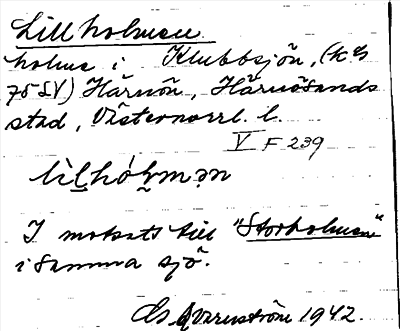 Lillholmen
holme i Klubbsjön, (k bl
75 SV) Härnön, Härnösands
stad, Västernorrl. l.
V F 239
lìl̠hól̠mən
I motsats till "Storholmen"
i samma sjö.
Qvarnström 1942.